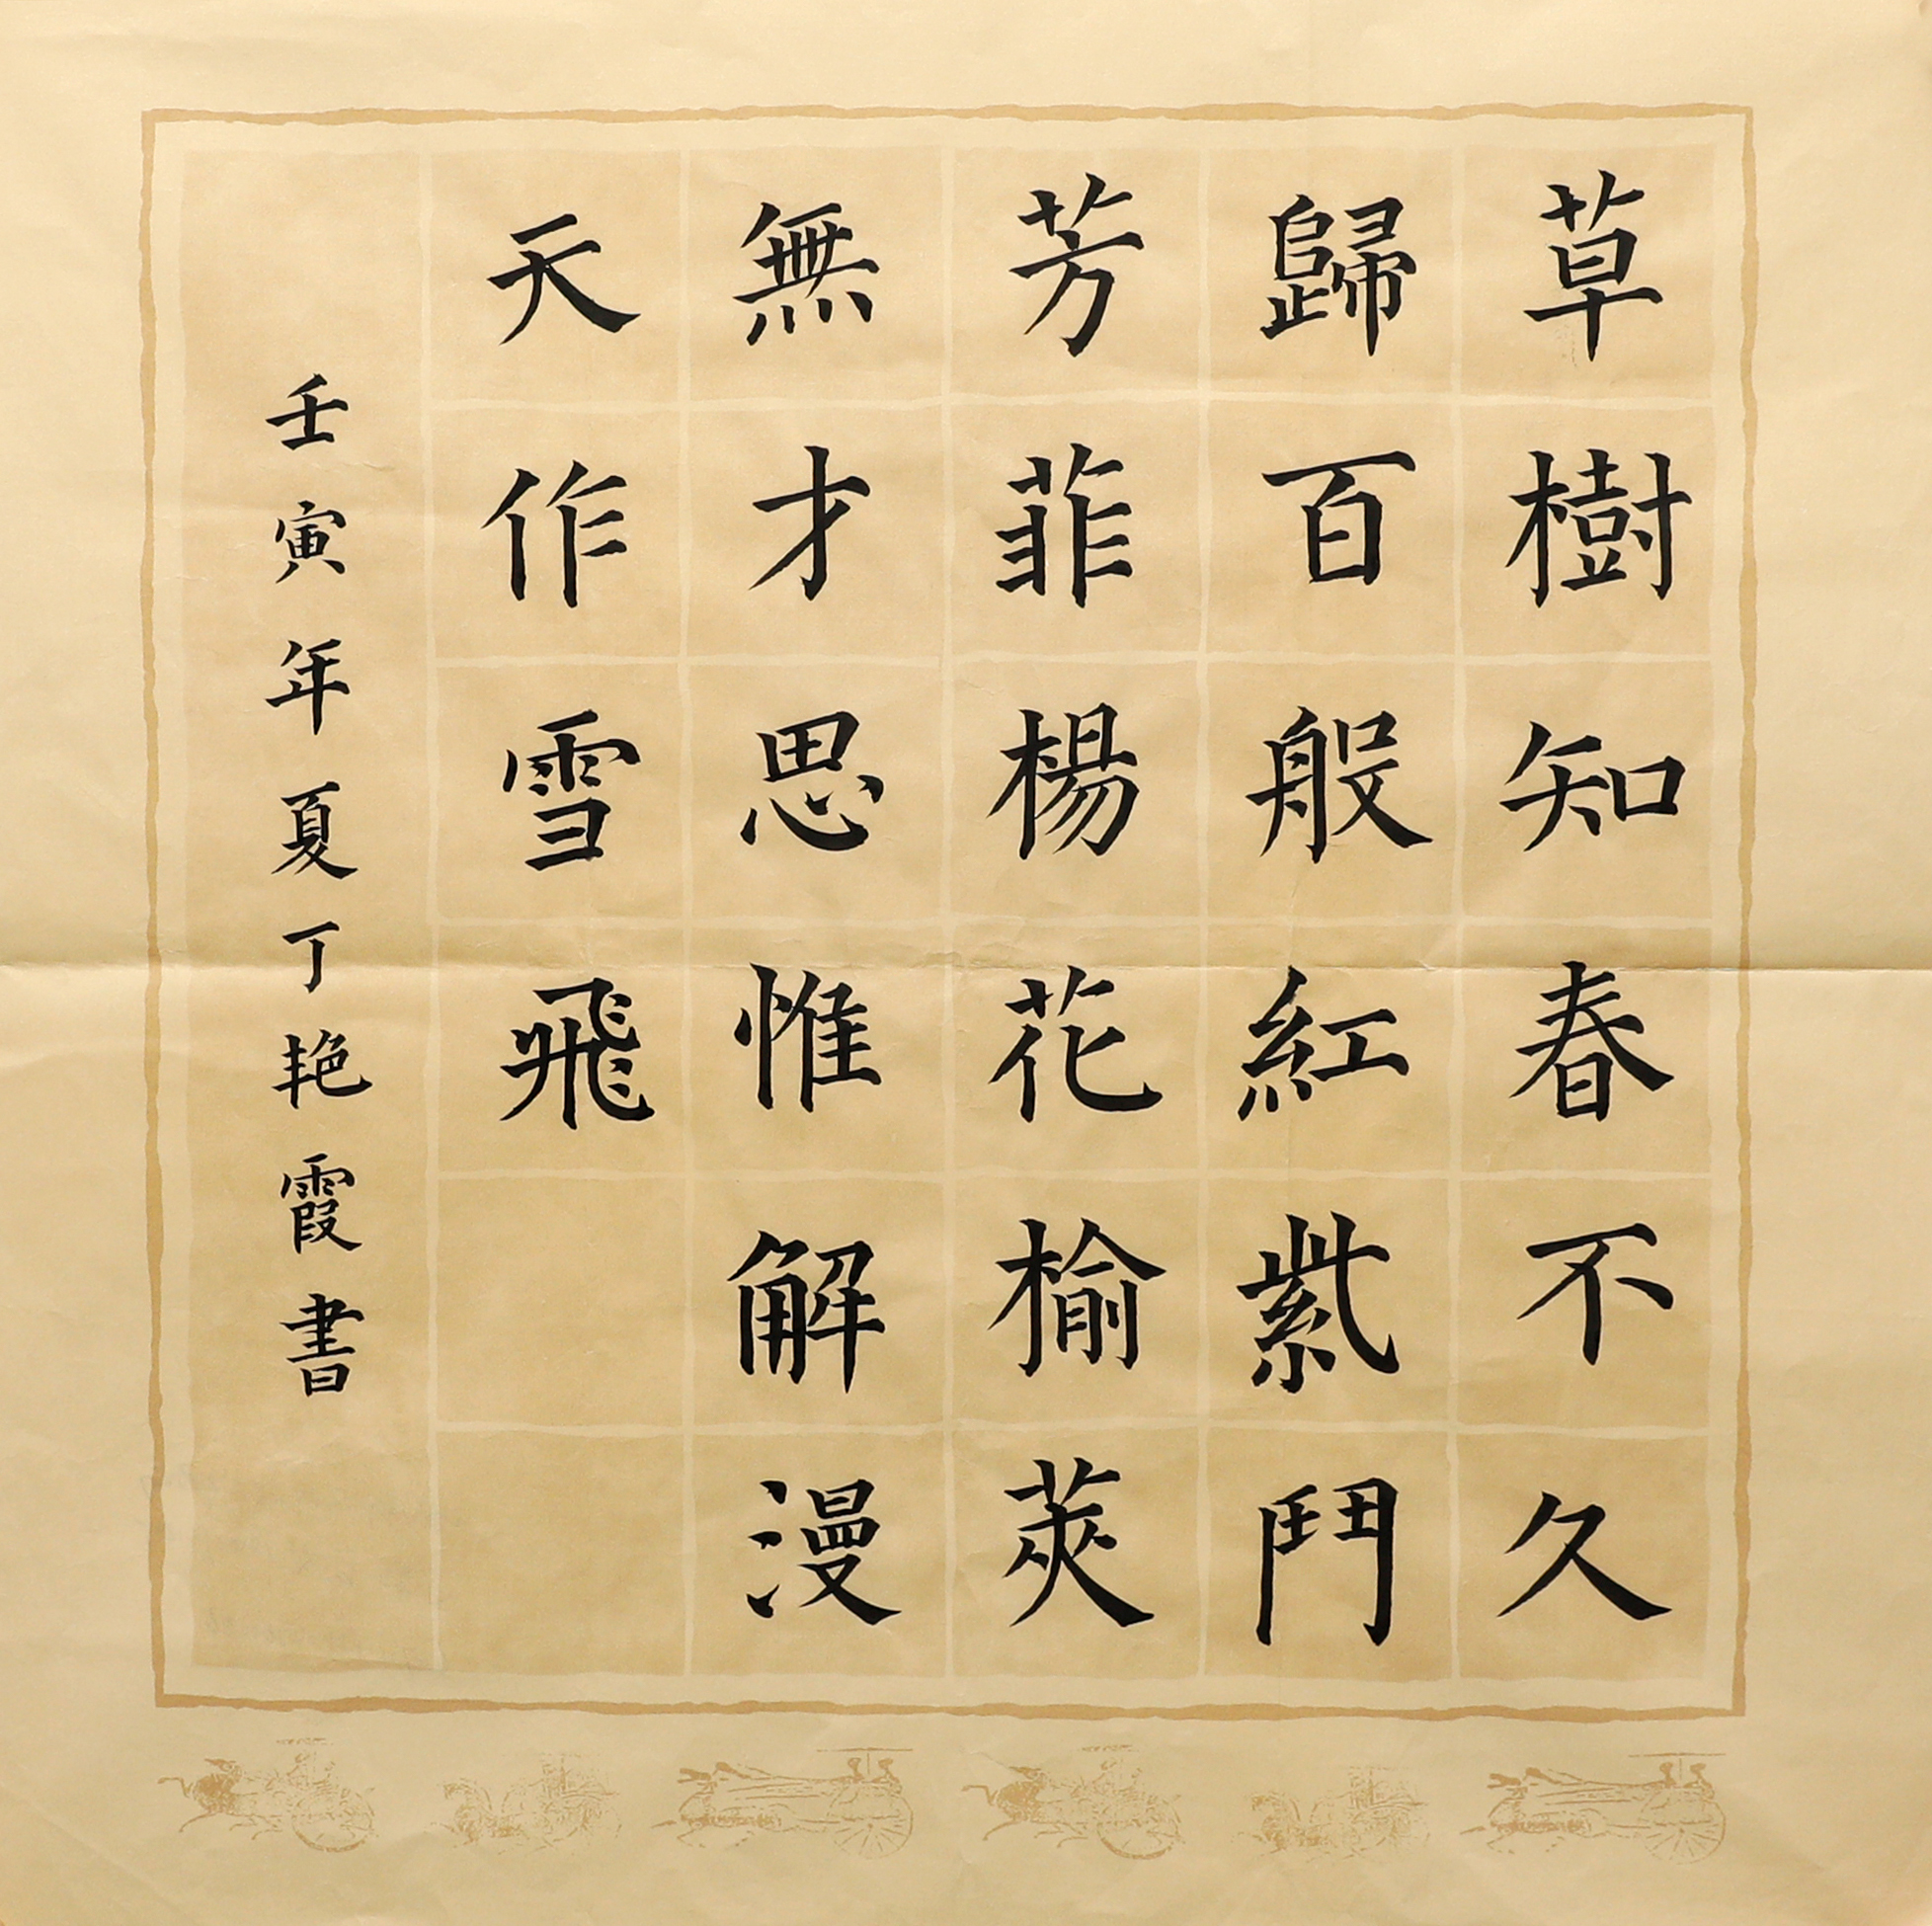 草樹知春不久
歸百般紅紫鬥
芳菲楊花榆莢
無才思惟解漫
天作雪飛
壬寅年夏丁艳霞書